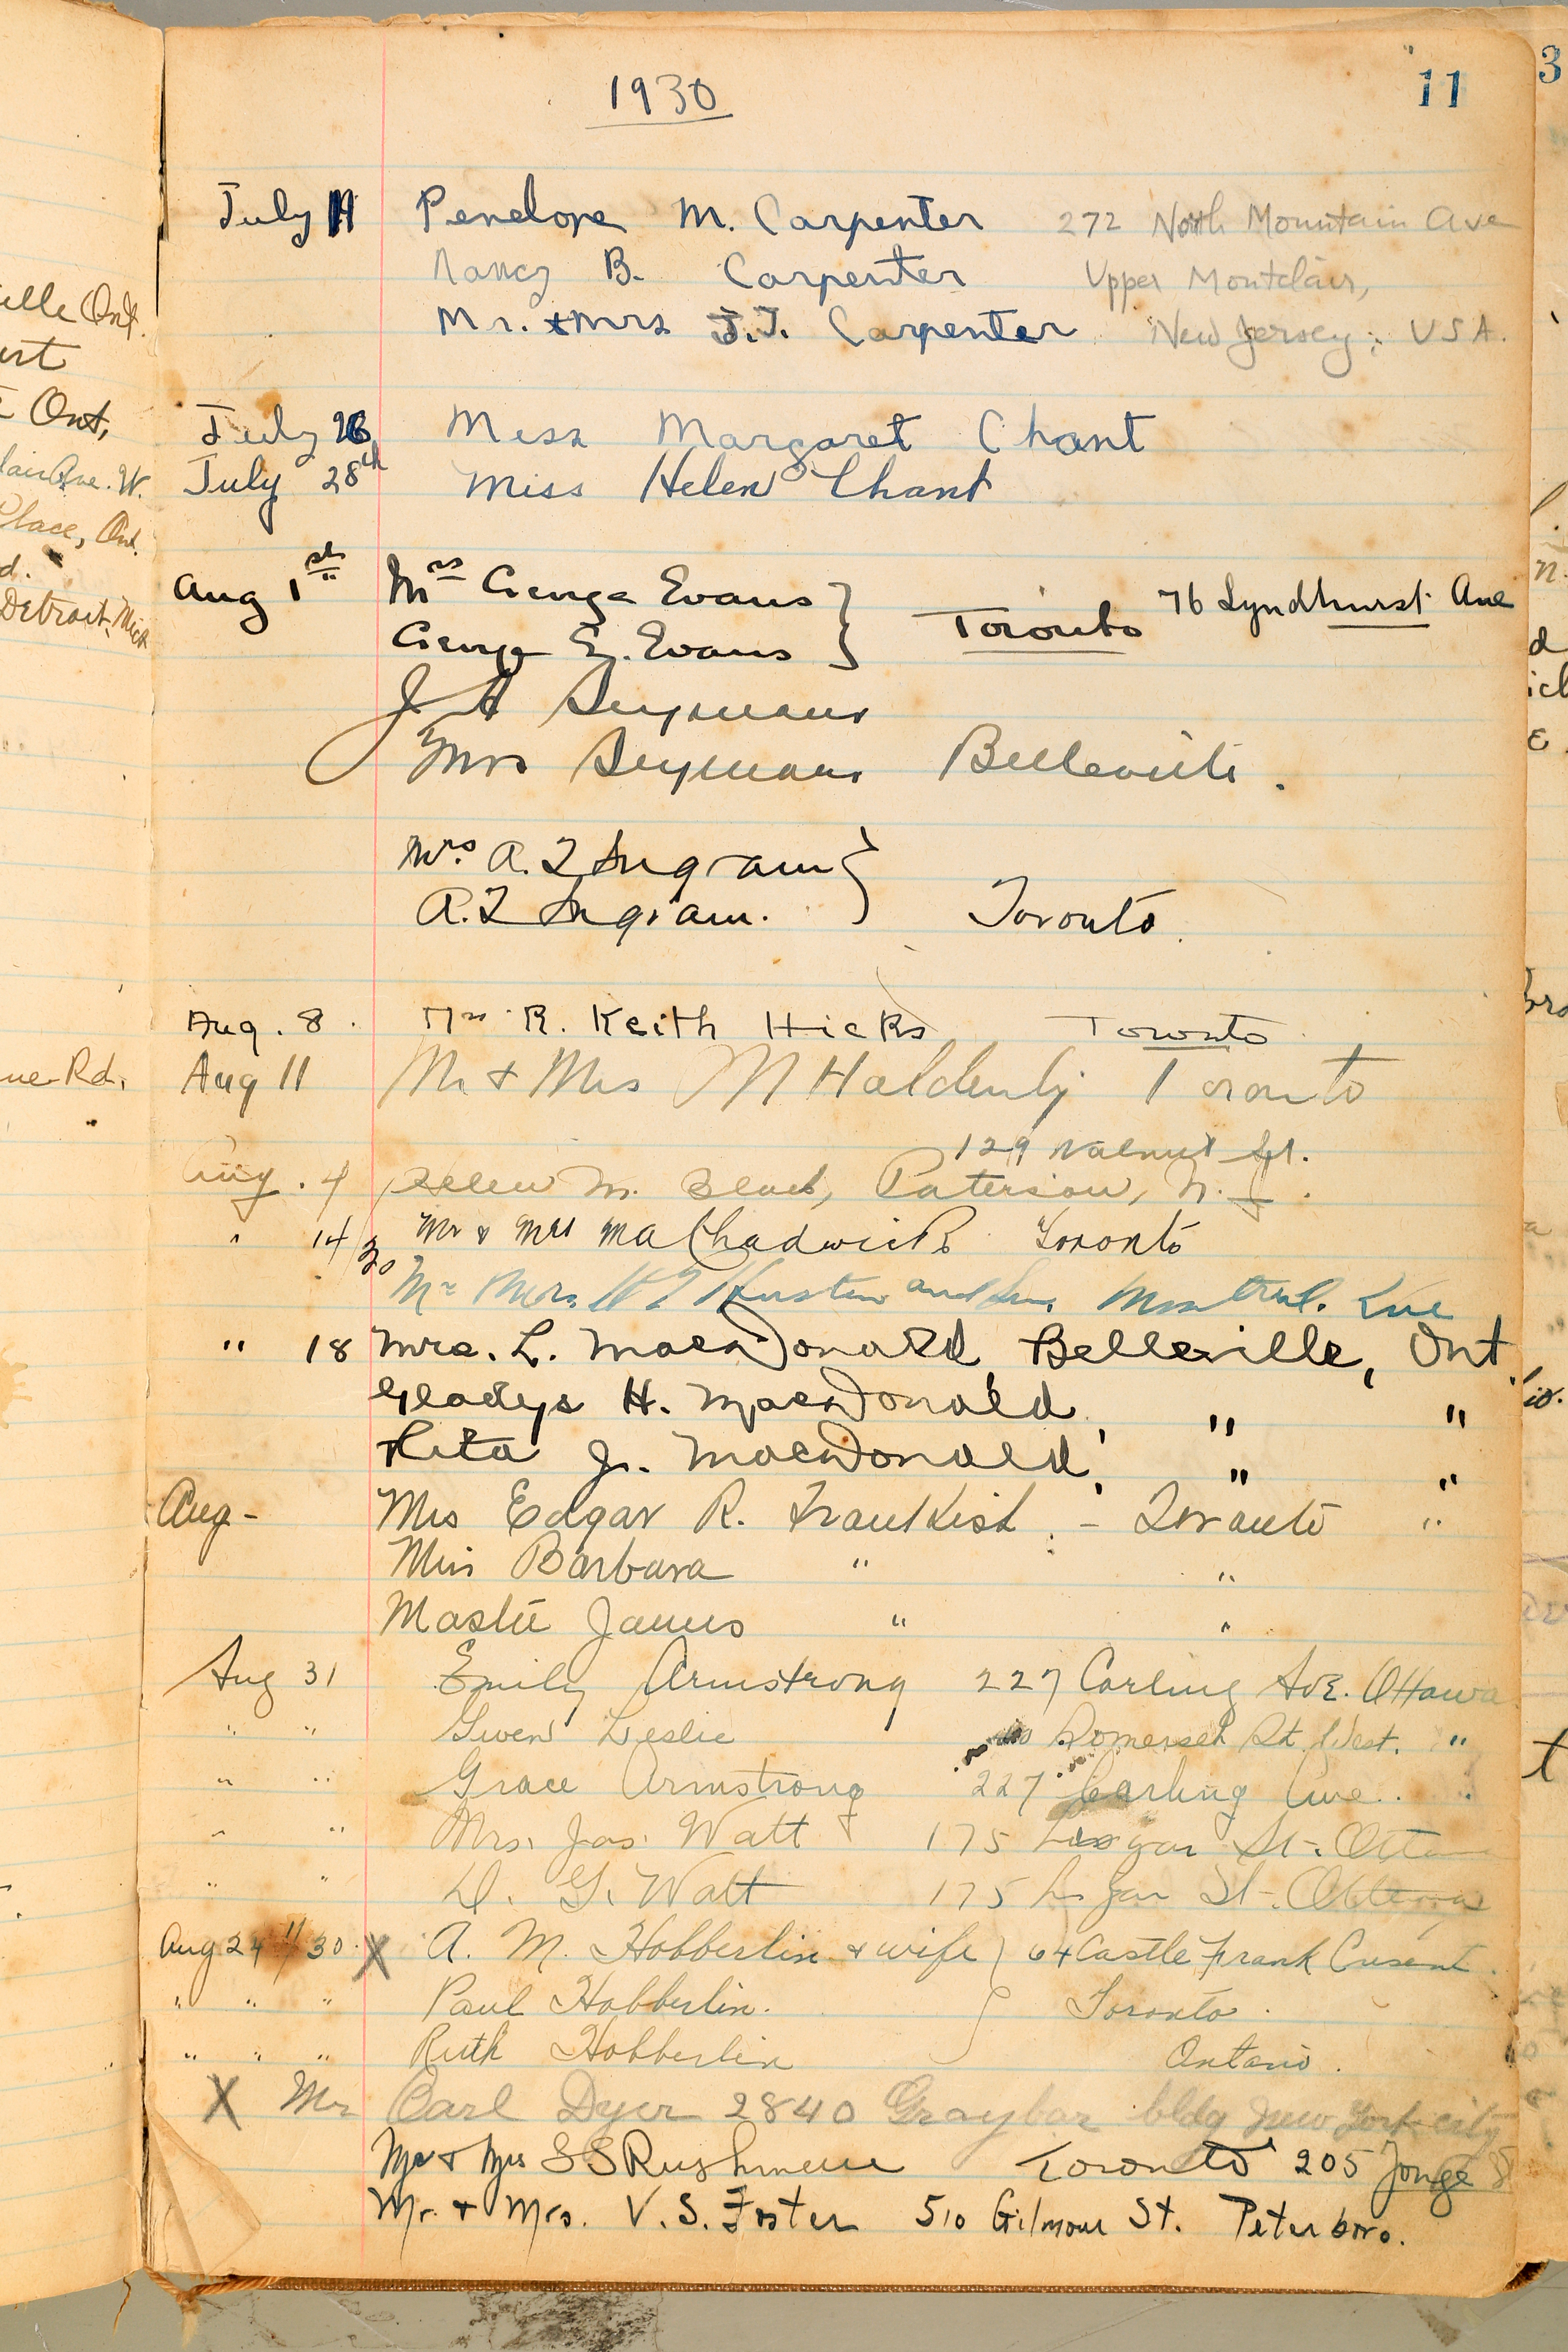 1930
11
July 11 Penelope M. Carpenter 272 North Mountain Ave
Nancy B. Carpenter Upper Montclair,
Mr. & Mrs J.T. Carpenter New Jersey; USA.
July 26 Miss Margaret Chant
July 28th Miss Helen Chant
Aug 1st Mrs George Evans } Toronto 76 Lyndhurst Ave
George E. Evans
J A Seymour
Mrs Seymour Belleville.
Mrs. A. I Ingram }
A. I Ingram. Toronto.
Aug. 8. Mrs R. Keith Hicks Toronto
Aug 11 Mr & Mrs M Haldenby Toronto
129 Walnut St.
Aug. 4 Helen M. Black, Paterson, N. J.
" 14/30 Mr & Mrs MA Chadwick Toronto
Mr Mrs. and Son. Montreal. Que
" 18 Mrs. L. MacDonald, Belleville, Ont.
Gladys H. MacDonald, " "
Rita J. MacDonald, " "
Aug - Mrs Edgar R. Frankish. - Toronto "
Miss Barbara " "
Master James " "
Aug 31 Emily Armstrong 227 Carling Ave. Ottawa
" " Gwen Leslie Somerset St. West. "
" " Grace Armstrong 227 Carling Ave. "
" " Mrs. Jas. Watt 175 Lisgar St. Ottawa
" " D. G. Watt 175 Lisgar St. Ottawa
Aug 24 "/30. X A. M. Hobberlin & wife } 64 Castle Frank Cresent.
" " " Paul Hobberlin. Toronto.
" " " Ruth Hobberlin Ontario.
X Mr Carl Dyer 2840 Graybar bldg New York city
Mr & Mrs S S Rushmere Toronto 205 Yonge S
Mr. & Mrs. V. S. Foster 510 Gilmour St. Peterboro.